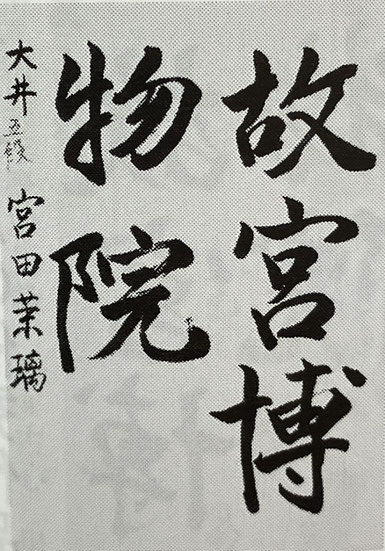 故宮博
物院
大井五段 宮田茉璃